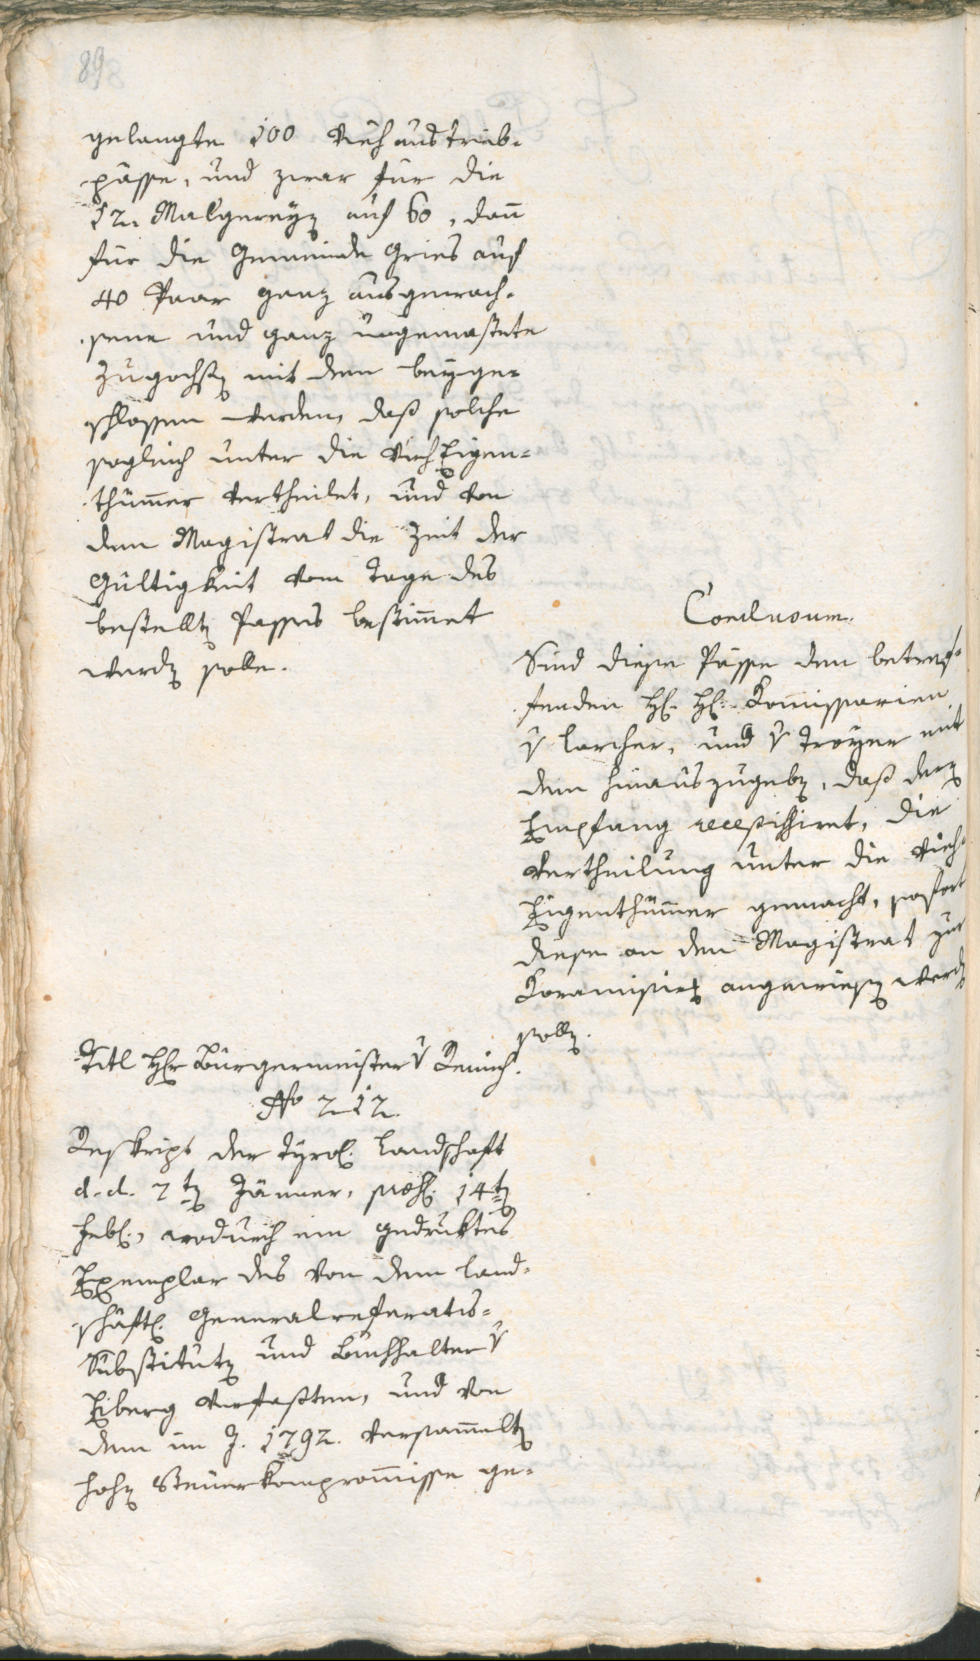 89
gelangte 100 Viehaustrieb-
pässe, und zwar für die
12. Malgereyen auf 60, dann
für die Gemeinde Gries auf
40 Paar ganz ausgewach-
sene und ganz ungemastete
Zugochsen mit dem beyge-
schlossen werden, daß solche
sogleich unter die Vieh Eigen-
thümmer vertheilet, und von
dem Magistrat die Zeit der
Gültigkeit vom Tage des
bestellten Passes bestimmet
werden solle.
Conclusum.
Sind diese Pässe den betref-
fenden H. H. Kommissarien
v Larcher, und v Troyer mit
dem hinauszugeben, daß der
Empfang recepissiret, die
Vertheilung unter die Vieh-
Eigenthümmer gemacht, sofort
diese an den Magistrat zur
angewiesen werden
sollen.
Titl Hr Bürgermeister v Remich.
No 212.
Reskript der Tyrol. Landschaft
d. d. 7ten Jänner, 14ten
Feb., wodurch ein gedrucktes
Exemplar des von dem land-
schäftl. Generalreferats-
Substituten und Buchhalter v
Eiberg verfaßten, und von
dem im J. 1792. versammelten
hohen Steuerkompromisse ge-